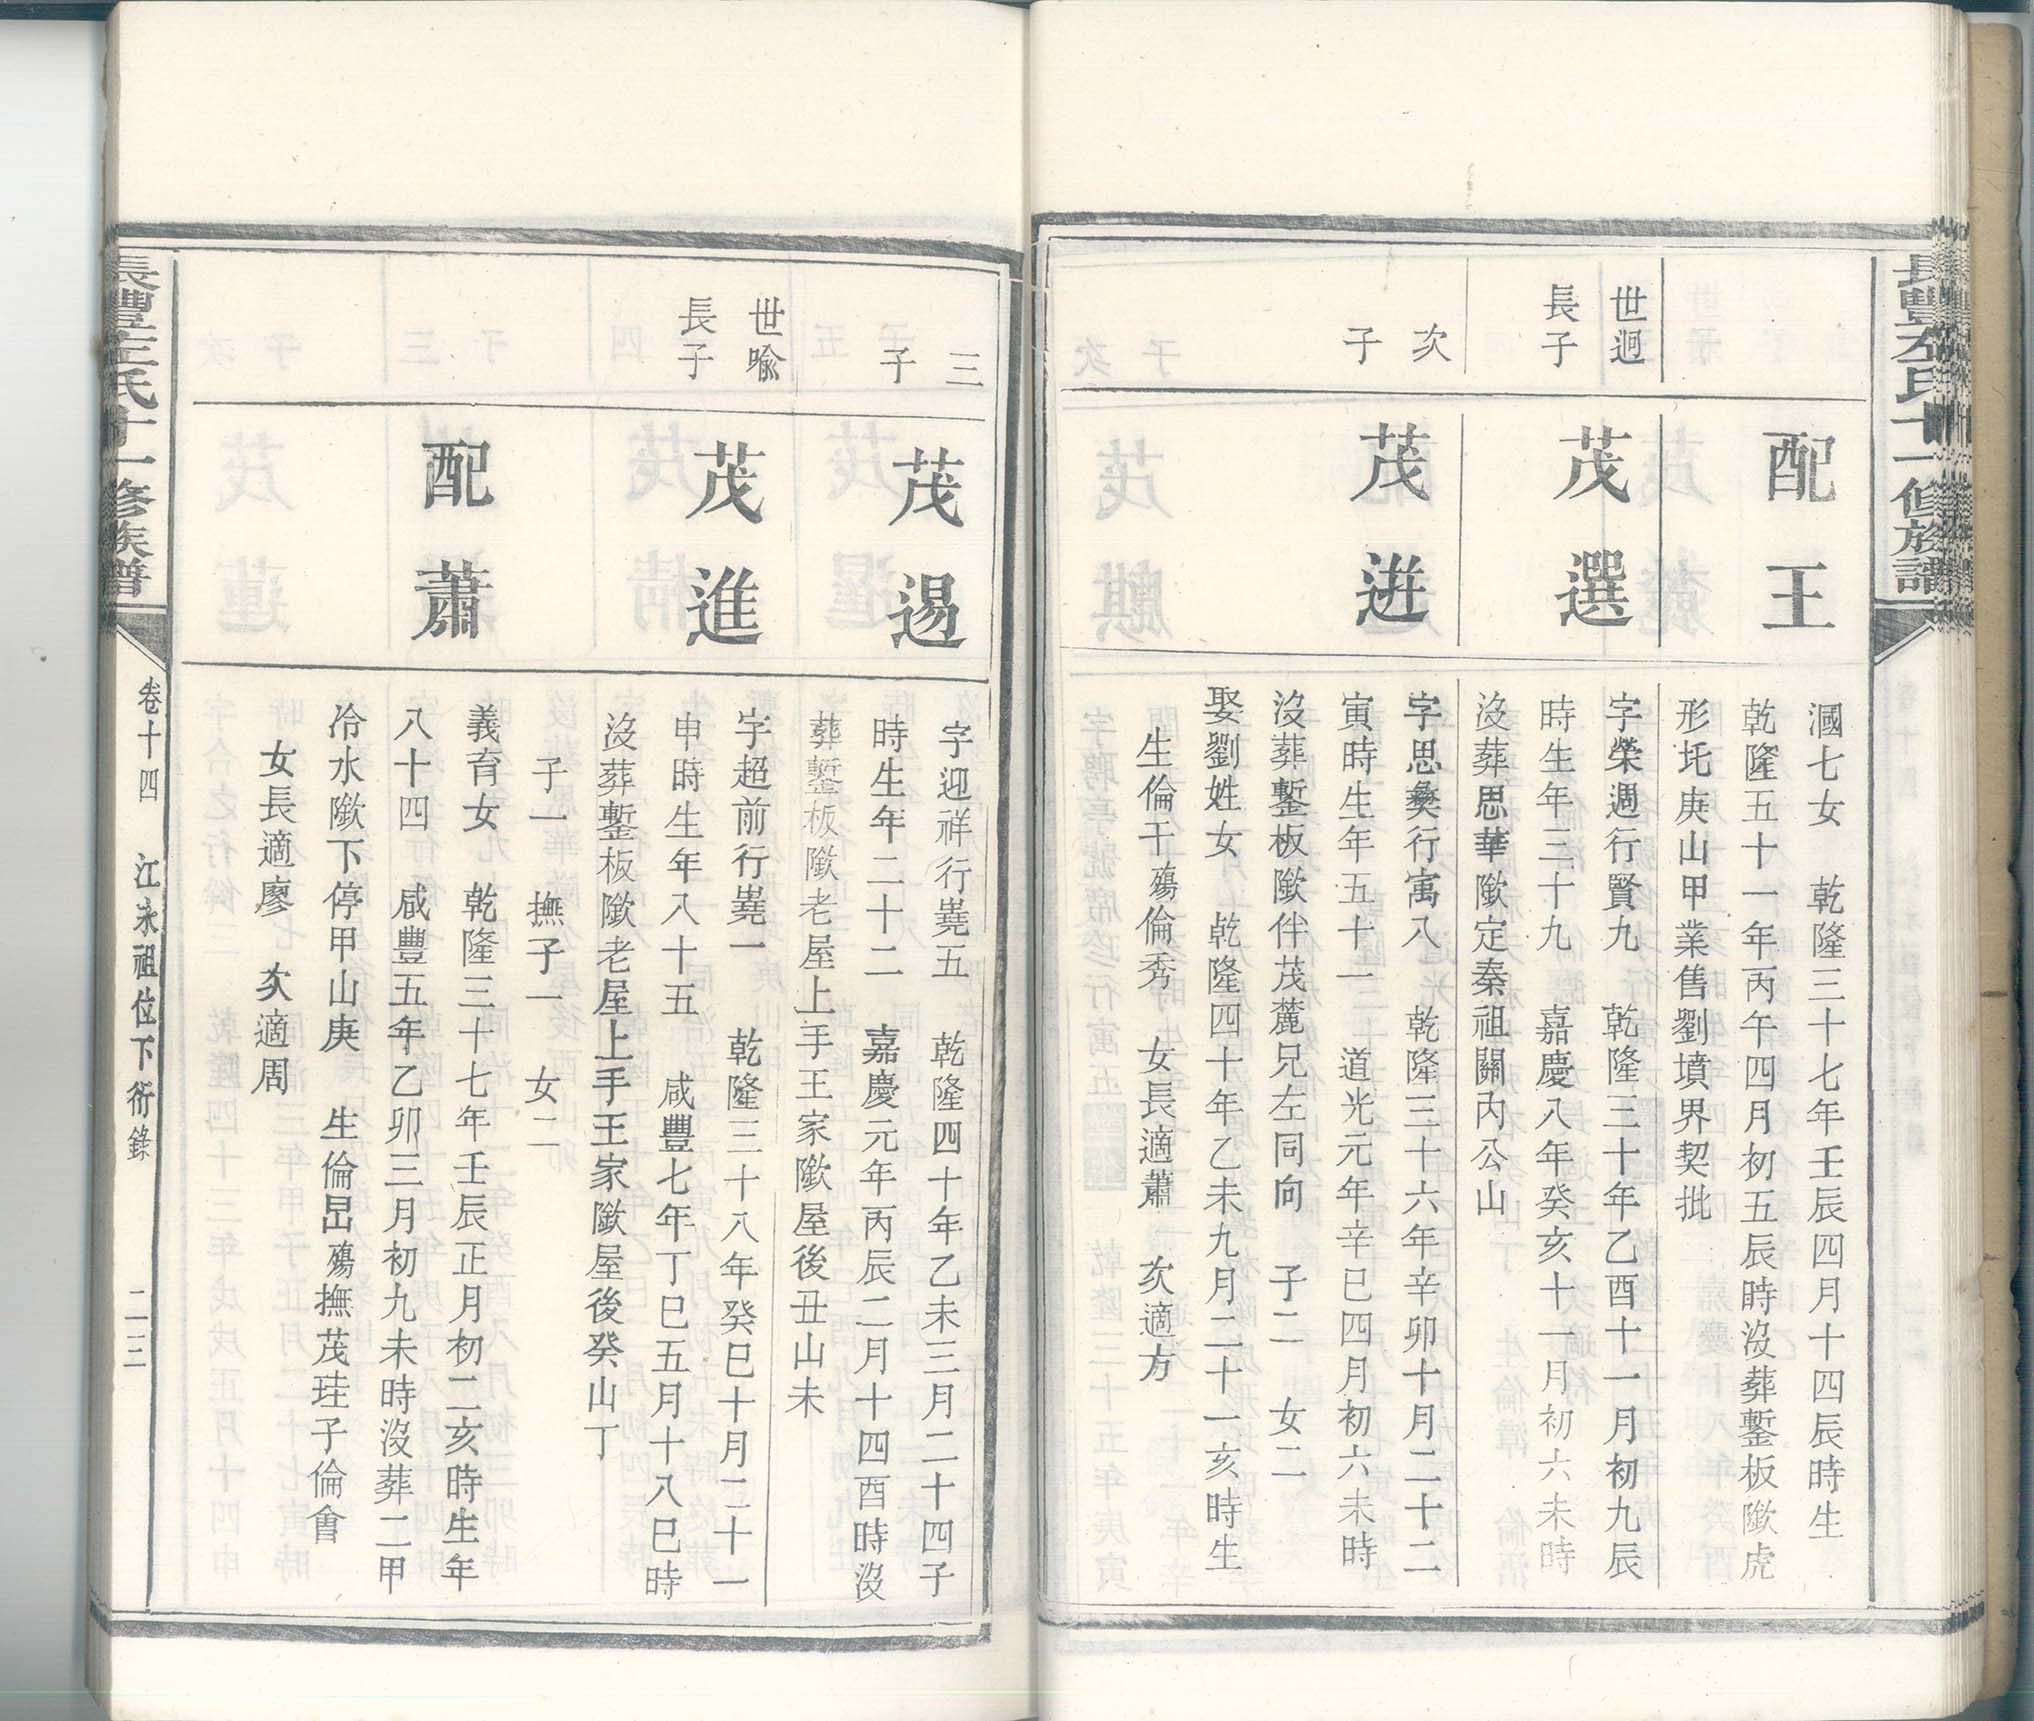 長豐左氏十一修族譜
配王
國七女　乾隆三十七年壬辰四月十四辰時生
乾隆五十一年丙午四月初五辰時沒葬鏨板㘓虎
形圫庚山甲業售劉墳界契批
世迥
長子
茂選
字榮週行賢九　乾隆三十年乙酉十一月初九辰
時生年三十九　嘉慶八年癸亥十一月初六未時
沒葬思華㘓定秦祖關內公山
次
子
茂逰
字思彝行寓八　乾隆三十六年辛卯十月二十二
寅時生年五十一　道光元年辛巳四月初六未時
沒葬鏨板㘓伴茂麓兄左同向　子二　女二
娶劉姓女　乾隆四十年乙未九月二十一亥時生
生倫干殤倫秀　女長適蕭　次適方
三
子
茂逷
字迎祥行蕘五　乾隆四十年乙未三月二十四子
時生年二十二　嘉慶元年丙辰二月十四酉時沒
葬鏨板㘓老屋上手王家㘓屋後丑山未
世喻
長子
茂進
字超前行蕘一　乾隆三十八年癸巳十月二十一
申時生年八十五　咸豐七年丁巳五月十八巳時
沒葬鏨板㘓老屋上手王家㘓屋後癸山丁
子一　撫子一　女二
配蕭
義育女　乾隆三十七年壬辰正月初二亥時生年
八十四　咸豐五年乙卯三月初九未時沒葬二甲
冷水㘓下停甲山庚　生倫畕殤撫茂珪子倫會
女長適廖　次適周
長豐左氏十一修族譜
卷十四　江永祖位下衍錄　二三